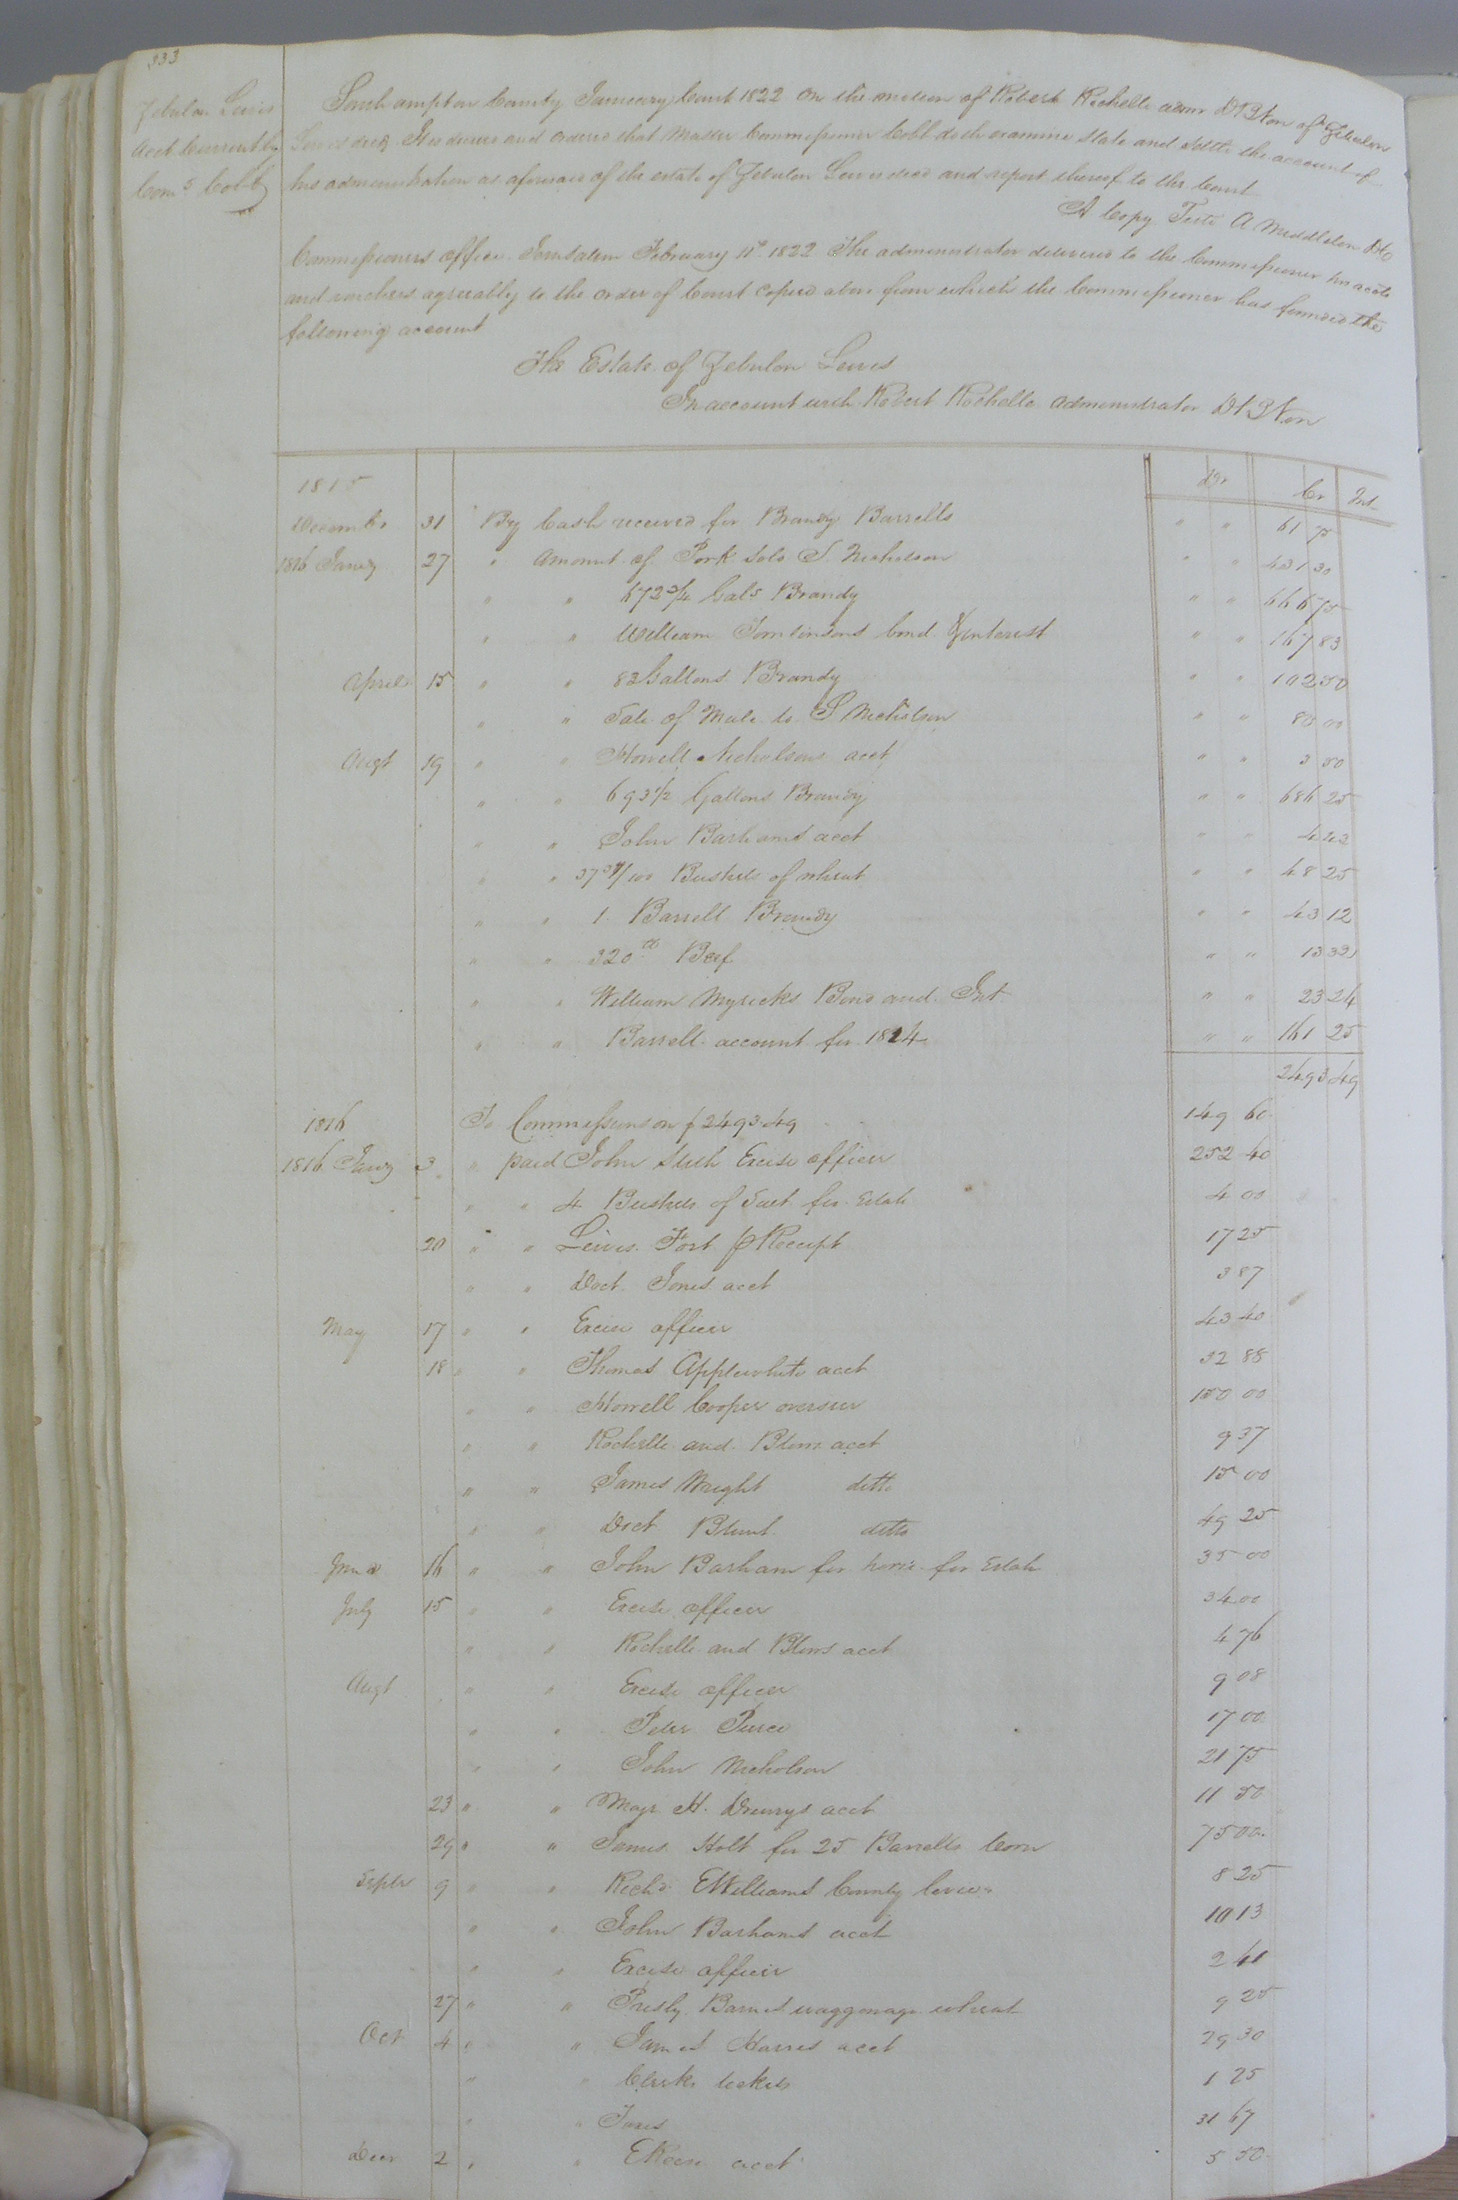 333
Zebulon Lewis
Acct Current by
Comr Cobb
Southampton County January Court 1822 On the motion of Robert Rochelle admr DBNon of Zebulon
Lewis decd. It is decreed and ordered that Master Commissioner Cobb doth examine state and settle the account of
his administration as aforesaid of the estate of Zebulon Lewis decd and report thereof to the Court
A Copy Teste A Middleton DC
Commissioners office Jerusalem February 11th 1822 The administrator delivered to the Commissioner his accts
and vouchers agreeably to the order of Court copied above from which the Commissioner has formed the
following account
The Estate of Zebulon Lewis
In account with Robert Rochelle administrator DBNon
Dr Cr Int
1815
December 31 By Cash received for Brandy Barrells " " 61 75
1816 Jany 27 " Amount of Pork sold S. Nicholson " " 431 30
" " 672 3/4 Gals Brandy " " 666 75
" " William Tomlinsons bond & interest " " 167 83
April 15 " " 82 Gallons Brandy " " 102 50
" " Sale of Mule to S Nicholson " " 80 00
Augt 19 " " Howell Nicholsons acct " " 3 50
" " 693 1/2 Gallons Brandy " " 686 25
" " John Barhams acct " " 4 43
" " 37 /100 Bushels of wheat " " 48 25
" " 1 Barrell Brandy " " 43 12
" " 320 lb Beef " " 13 32
" " William Myricks Bond and Int " " 23 24
" " Barrell account for 1814 " " 161 25
2493 49
1816 To Commissions on $2493.49 149 60
1816 Jany 3 " paid John Slush Excise officer 252 40
" " 4 Bushels of Salt for Estate 4 00
20 " " Lewis Fort p Receipt 17 25
" " Doct Jones acct 3 87
May 17 " " Excise officer 43 40
18 " " Thomas Applewhite acct 32 88
" " Howell Cooper overseer 150 00
" " Rochelle and Blow acct 9 37
" " James Wright ditto 15 00
" " Doct Blunt ditto 49 25
June 16 " " John Barham for horse for Estate 35 00
July 15 " " Excise officer 34 00
" " Rochelle and Blows acct 4 76
Augt " " Excise officer 9 08
" " Peter Peirce 17 00
" " John Nicholson 21 75
23 " " Majr H. Drewrys acct 11 50
29 " " James Holt for 25 Barrells Corn 75 00
Septr 9 " " Richd EWilliams County levies 8 25
" " John Barhams acct 10 13
" " Excise officer 2 41
27 " " Presly Barnes waggonage wheat 9 25
Oct 4 " " James Harris acct 29 30
" " Clerks tickets 1 25
" " Taxes 31 67
Decr 2 " " acct 5 50